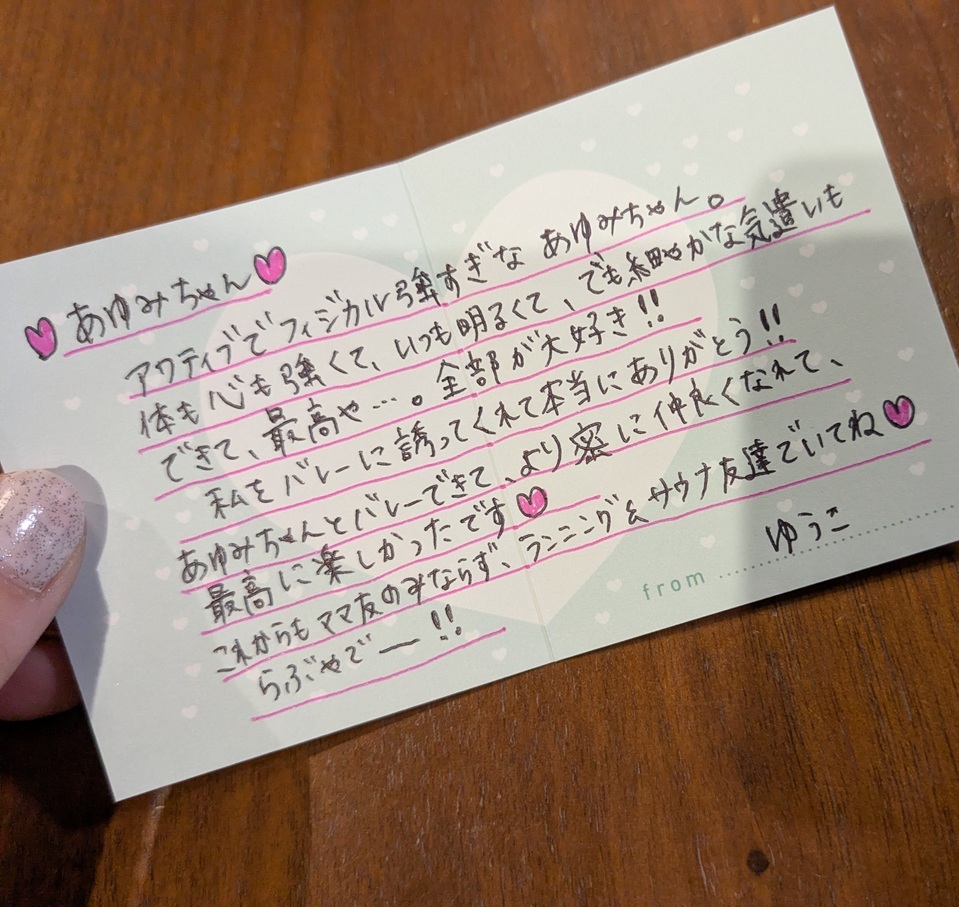 ♥あゆみちゃん♥
アクティブでフィジカル強すぎな あゆみちゃん。
体も心も強くて、いつも明るくて、でも細やかな気遣いも
できて、最高や…。全部が大好き!!
私をバレーに誘ってくれて本当にありがとう!!
あゆみちゃんとバレーできて、より密に仲良くなれて、
最高に楽しかったです♥
これからもママ友のみならず、ランニング&サウナ友達でいてね♥
らぶやでー!!
ゆうこ
from